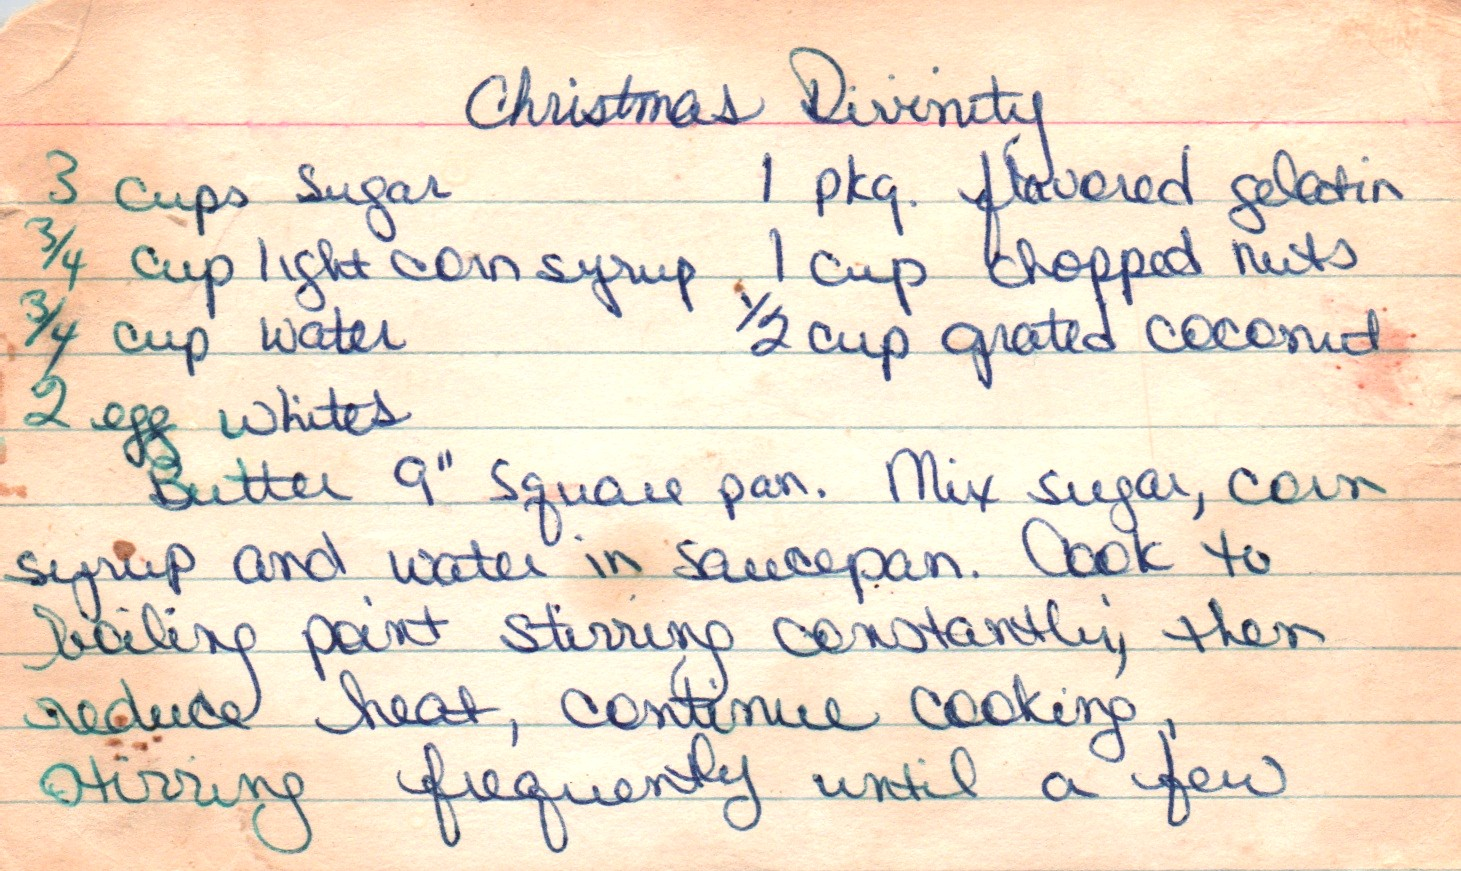 Christmas Divinity
3 cups sugar 1 pkg. flavored gelatin
3/4 cup light corn syrup 1 cup chopped nuts
3/4 cup water 1/2 cup grated coconut
2 egg whites
Butter 9" square pan. Mix sugar, corn
syrup and water in saucepan. Cook to
boiling point stirring constantly; then
reduce heat, continue cooking,
stirring frequently until a few